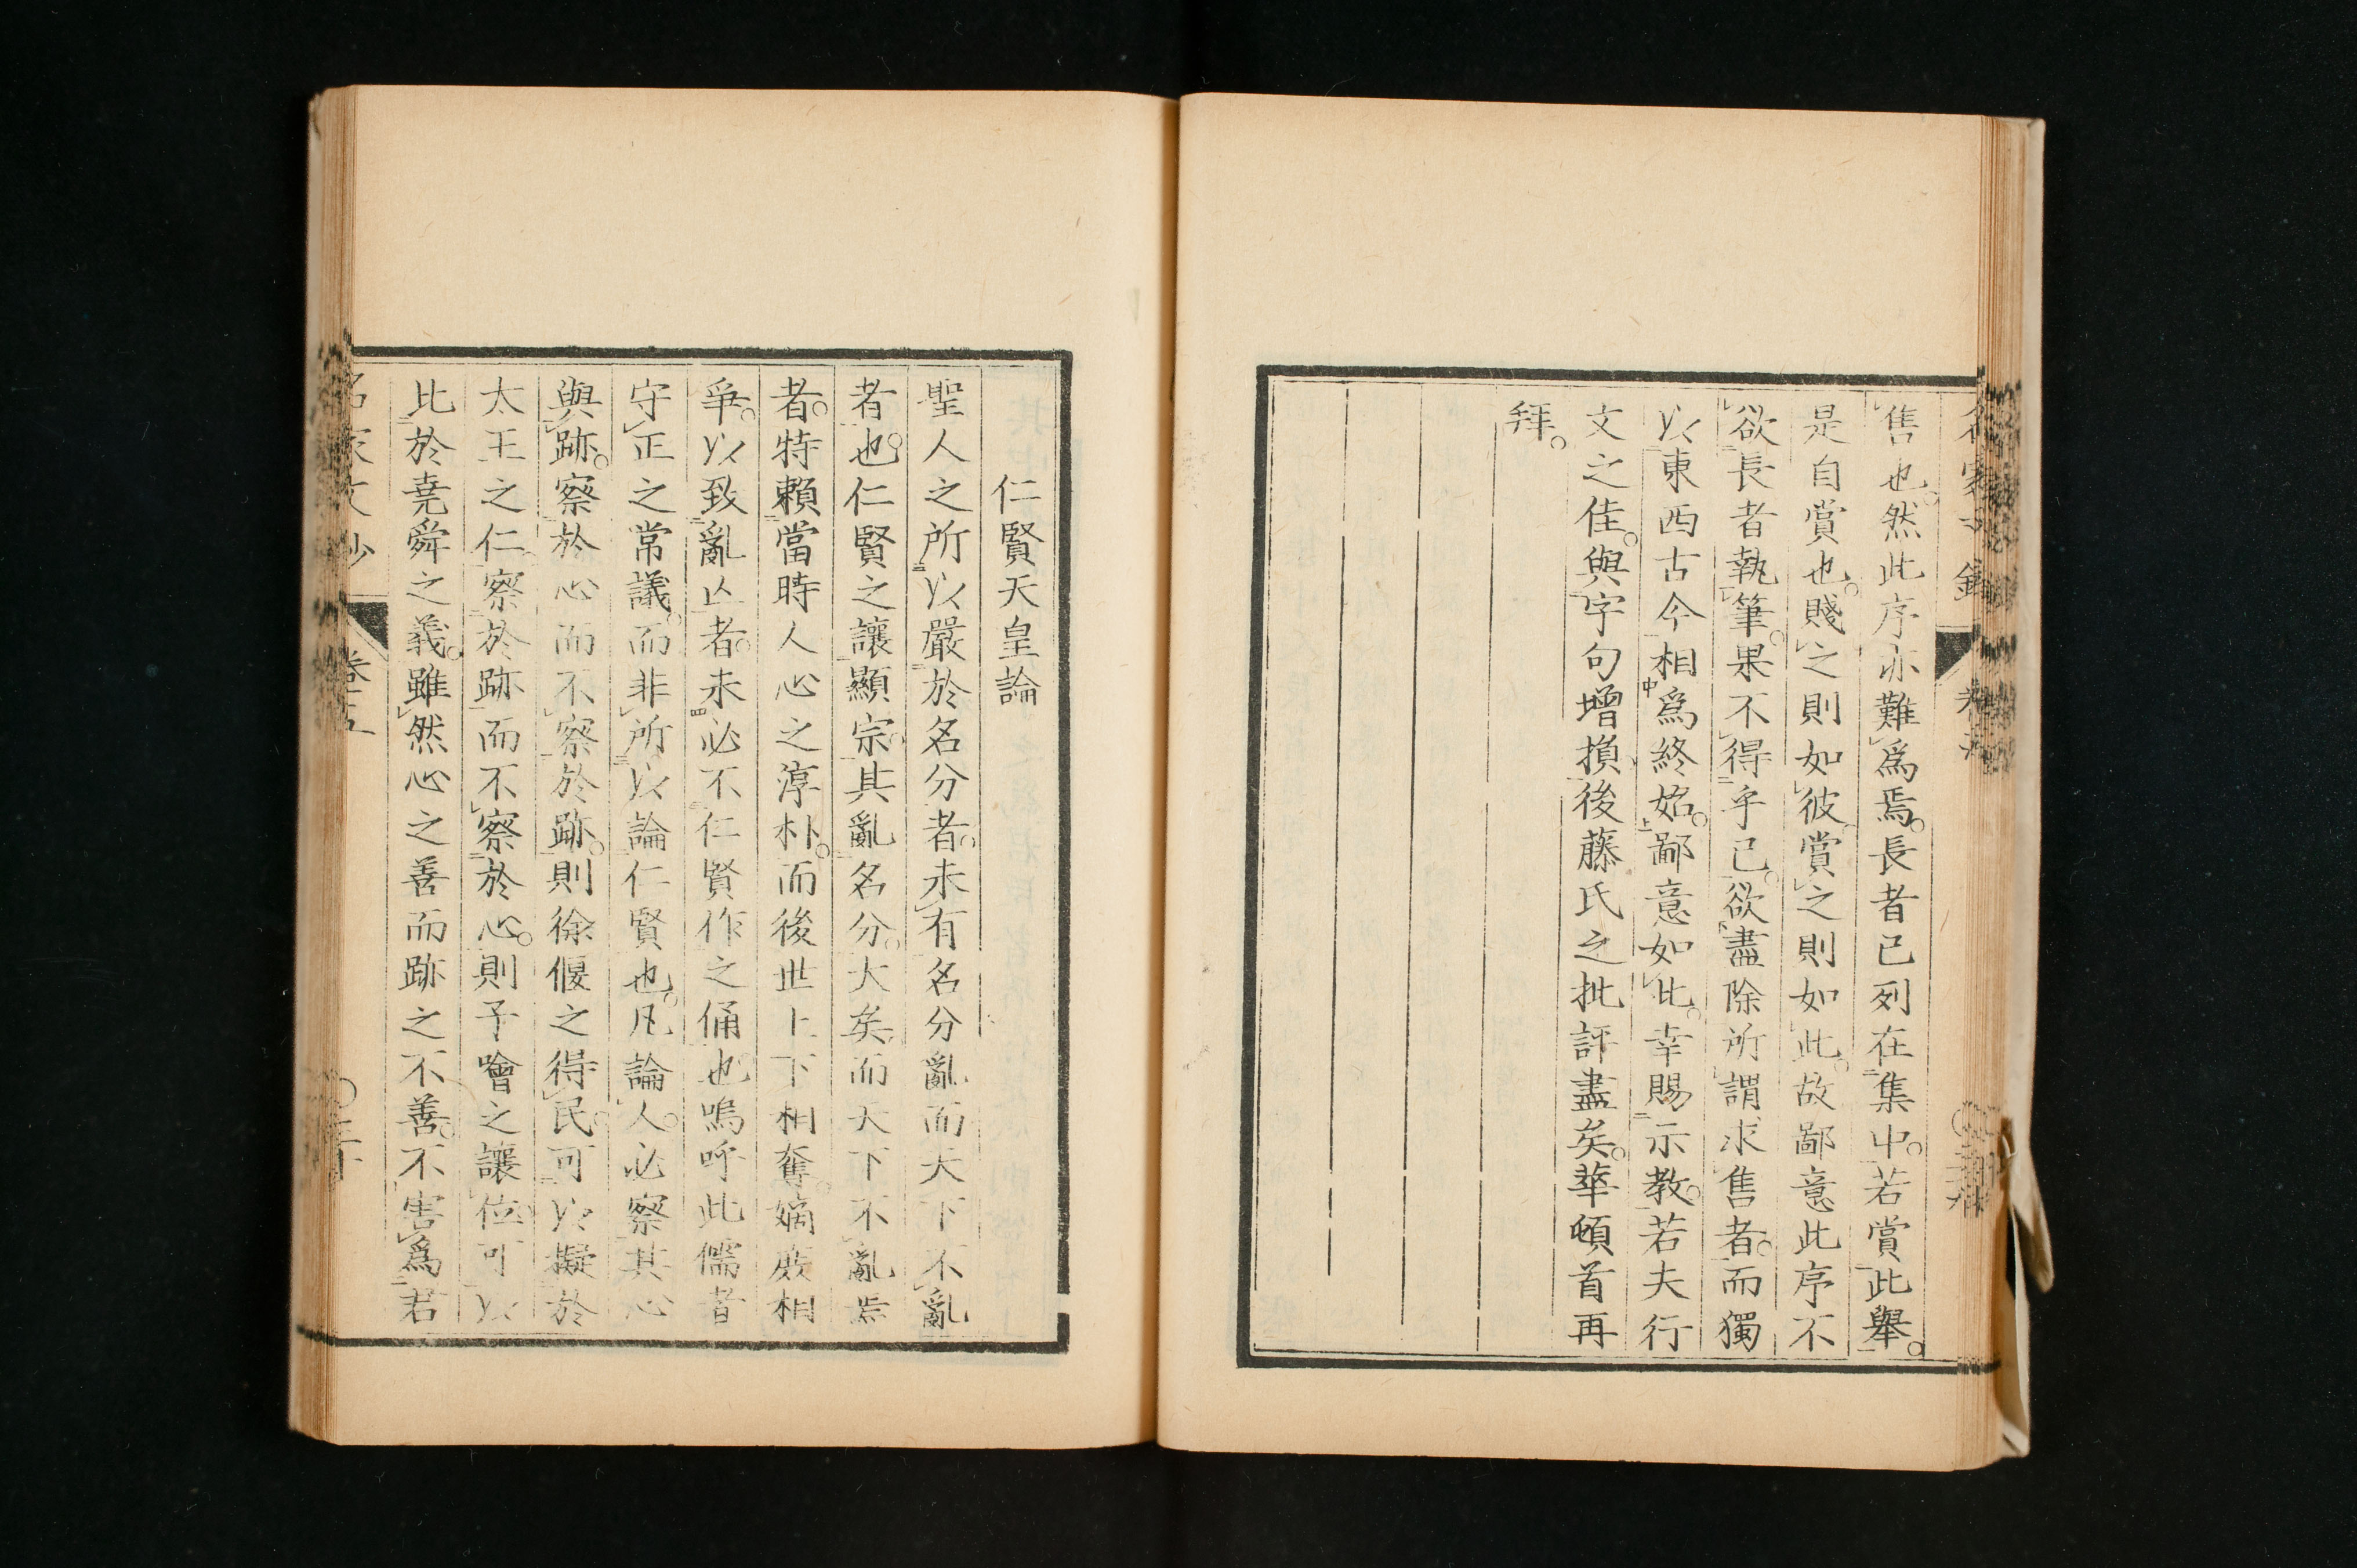 售也。然此序亦難爲焉。長者已列在集中。若賞此舉。
是自賞也。賤之則如彼賞之則如此。故鄙意此序不
欲長者執筆。果不得乎已。欲盡除所謂求售者。而獨
以東西古今相爲終始。鄙意如此。幸賜示教。若夫行
文之佳。與字句增損後藤氏之批評盡矣。華頓首再
拜。
仁賢天皇論
聖人之所以嚴於名分者。未有名分亂而天下不亂
者也。仁賢之讓顯宗。其亂名分。大矣。而天下不亂焉
者。特賴當時人心之淳朴。而後世上下相奪嫡庶相
爭。以致亂亾者。未必不仁賢作之俑也。嗚呼此儒者
守正之常議。而非所以論仁賢也。凡論人。必察其心
與跡。察於心而不察於跡。則徐偃之得民。可以擬於
太王之仁察於跡而不察於心。則子噲之讓位可以
比於堯舜之義。雖然心之善而跡之不善。不害爲君